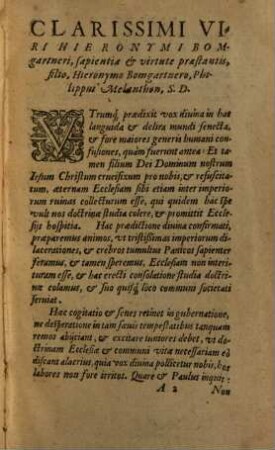 CLARISSIMI VI-
RI HIERONYMI BOM-
gartneri, sapientia & virtute præstantis,
filio, Hieronymo Bomgartnero, Phi-
lippus Melanthon, S. D.
VTrumq; prædixit vox diuina in hac
languida & delira mundi senecta,
& fore maiores generis humani con-
fusiones, quàm fuerunt antea: Et ta-
men filium Dei Dominum nostrum
Iesum Christum crucifixum pro nobis, & resuscita-
tum, æternam Ecclesiam sibi etiam inter imperio-
rum ruinas collecturum esse, qui quidem hac spe
vult nos doctrinæ studia colere, & promittit Eccle-
sijs hospitia. Hac prædictione diuina confirmati,
præparemus animos, vt tristissimas imperiorum di-
lacerationes, & crebros tumultus Panicos sapienter
feramus, & tamen speremus, Ecclesiam non interi-
turam esse, & hac erecti consolatione studia doctri-
næ colamus, & suo quisq; loco communi societati
seruiat.
Hæc cogitatio & senes retinet in gubernatione,
ne desperatione in tam sæuis tempestatibus tanquam
remos abijciant, & excitare iuniores debet, vt do-
ctrinam Ecclesiæ & communi vitæ necessariam eò
discant alacrius, quia vox diuina pollicetur nobis, hos
labores non fore irritos. Quare & Paulus inquit:
A 2 Non